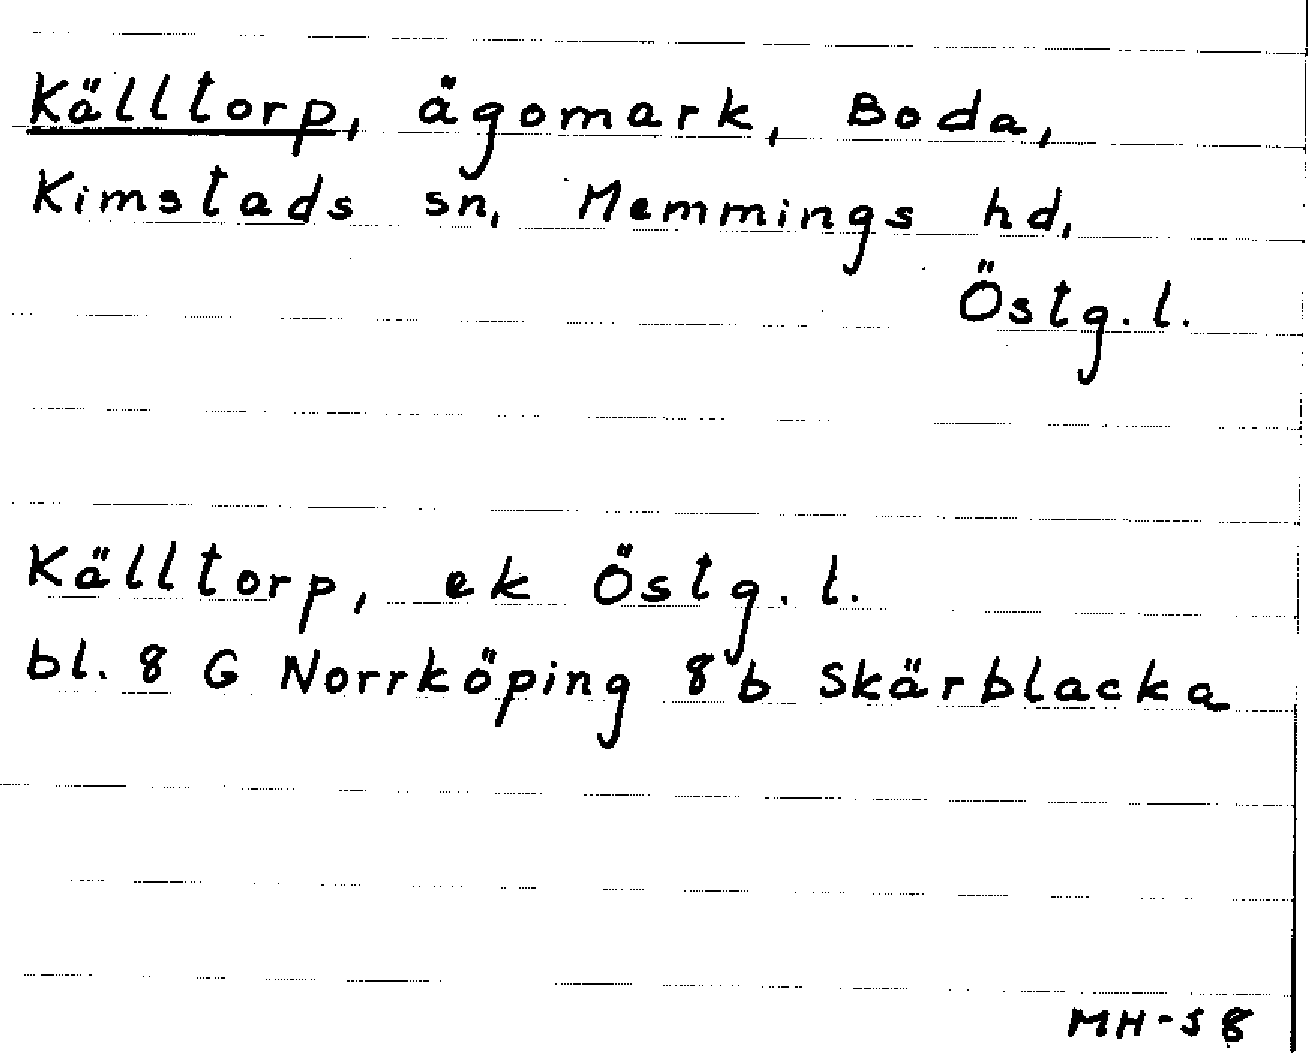 Källtorp, ägomark, Boda,
Kimstads sn, Memmings hd,
Östg. l.
Källtorp, ek Östg. l.
bl. 8 G Norrköping 8 b Skärblacka
MH-58